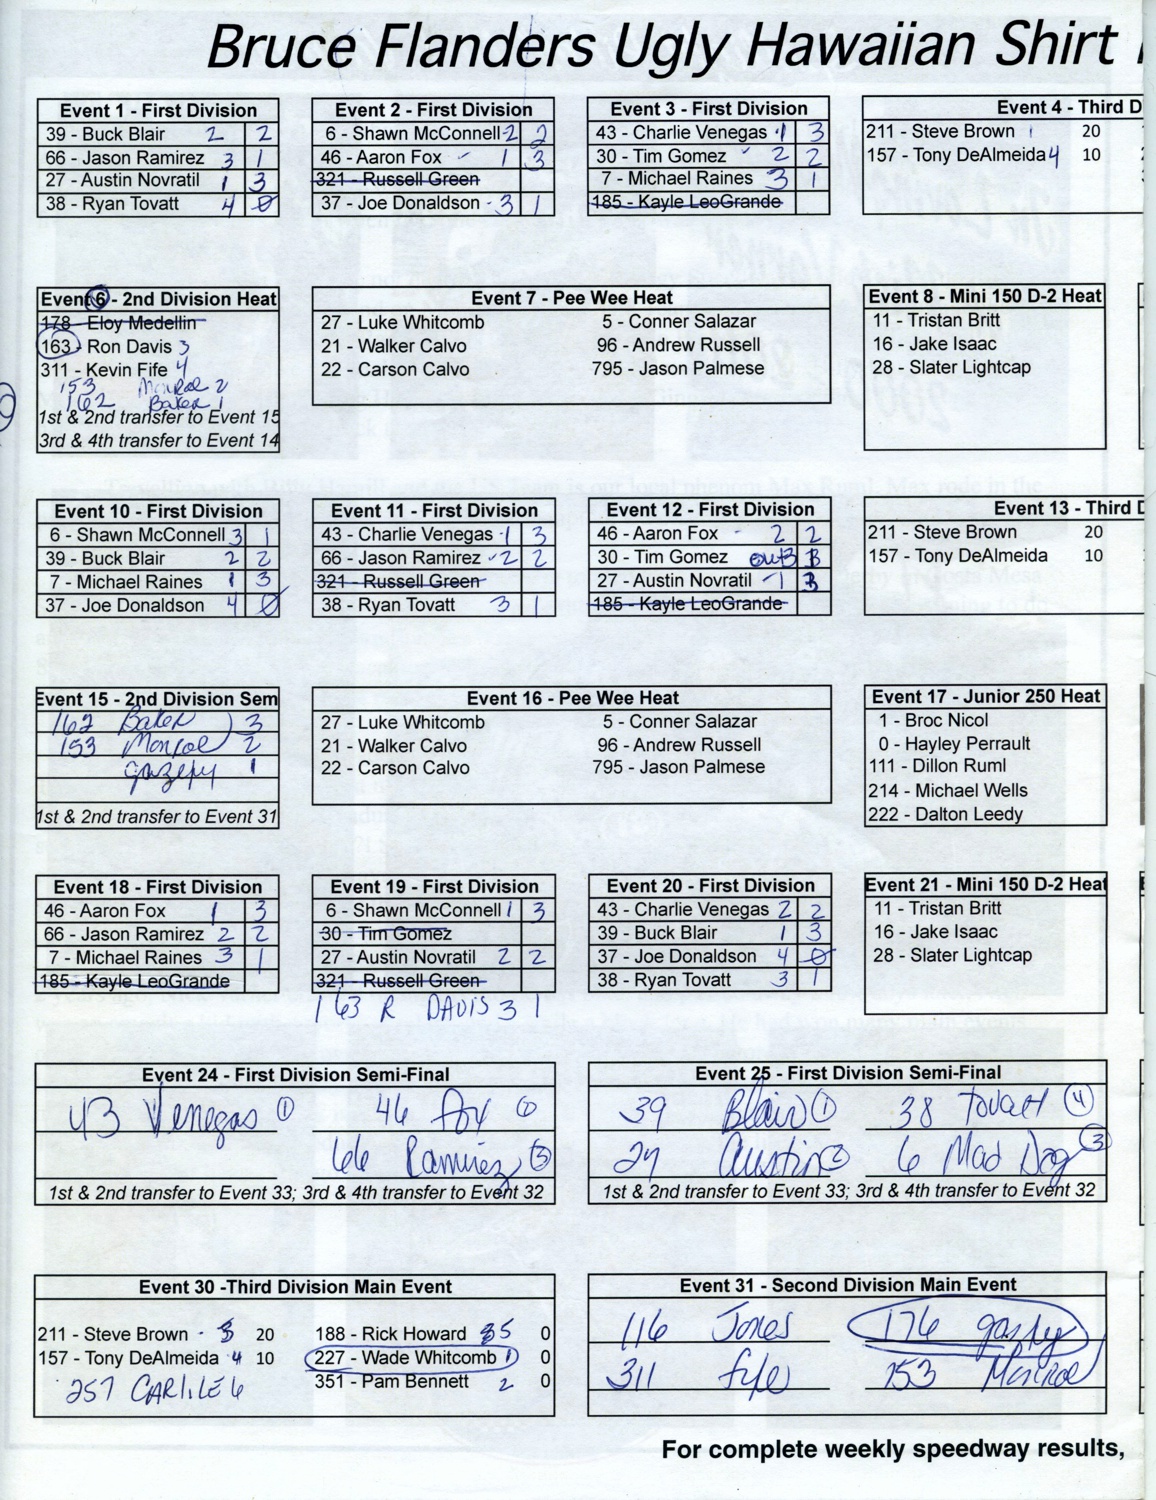 Bruce Flanders Ugly Hawaiian Shirt
Event 1 - First Division
39 - Buck Blair 2 2
66 - Jason Ramirez 3 1
27 - Austin Novratil 1 3
38 - Ryan Tovatt 4 0
Event 2 - First Division
6 - Shawn McConnell 2 2
46 - Aaron Fox 1 3
321 - Russell Green
37 - Joe Donaldson - 3 1
Event 3 - First Division
43 - Charlie Venegas 1 3
30 - Tim Gomez 2 2
7 - Michael Raines 3 1
185 - Kayle LeoGrande
Event 4 - Third D
211 - Steve Brown 1 20
157 - Tony DeAlmeida 4 10
Event 6 - 2nd Division Heat
178 - Eloy Medellin
163 - Ron Davis 3
311 - Kevin Fife 4
153 Monroe 2
162 Baker 1
1st & 2nd transfer to Event 15
3rd & 4th transfer to Event 14
Event 7 - Pee Wee Heat
27 - Luke Whitcomb 5 - Conner Salazar
21 - Walker Calvo 96 - Andrew Russell
22 - Carson Calvo 795 - Jason Palmese
Event 8 - Mini 150 D-2 Heat
11 - Tristan Britt
16 - Jake Isaac
28 - Slater Lightcap
Event 10 - First Division
6 - Shawn McConnell 3 1
39 - Buck Blair 2 2
7 - Michael Raines 1 3
37 - Joe Donaldson 4 0
Event 11 - First Division
43 - Charlie Venegas 1 3
66 - Jason Ramirez 2 2
321 - Russell Green
38 - Ryan Tovatt 3 1
Event 12 - First Division
46 - Aaron Fox - 2 2
30 - Tim Gomez
27 - Austin Novratil - 1 3
185 - Kayle LeoGrande
Event 13 - Third D
211 - Steve Brown 20
157 - Tony DeAlmeida 10
Event 15 - 2nd Division Sem
162 Baker 3
153 Monroe 2
1
1st & 2nd transfer to Event 31
Event 16 - Pee Wee Heat
27 - Luke Whitcomb 5 - Conner Salazar
21 - Walker Calvo 96 - Andrew Russell
22 - Carson Calvo 795 - Jason Palmese
Event 17 - Junior 250 Heat
1 - Broc Nicol
0 - Hayley Perrault
111 - Dillon Ruml
214 - Michael Wells
222 - Dalton Leedy
Event 18 - First Division
46 - Aaron Fox 1 3
66 - Jason Ramirez 2 2
7 - Michael Raines 3 1
185 - Kayle LeoGrande
Event 19 - First Division
6 - Shawn McConnell 1 3
30 - Tim Gomez
27 - Austin Novratil 2 2
321 - Russell Green
163 R DAVIS 3 1
Event 20 - First Division
43 - Charlie Venegas 2 2
39 - Buck Blair 1 3
37 - Joe Donaldson 4 0
38 - Ryan Tovatt 3 1
Event 21 - Mini 150 D-2 Heat
11 - Tristan Britt
16 - Jake Isaac
28 - Slater Lightcap
Event 24 - First Division Semi-Final
43 Venegas 1 46 Fox 2
66 Ramirez 3
1st & 2nd transfer to Event 33; 3rd & 4th transfer to Event 32
Event 25 - First Division Semi-Final
39 Blair 1 38 Tovatt 4
27 Austin 2 6 Mad Dog 3
1st & 2nd transfer to Event 33; 3rd & 4th transfer to Event 32
Event 30 -Third Division Main Event
211 - Steve Brown - 3 20 188 - Rick Howard 5 0
157 - Tony DeAlmeida 4 10 227 - Wade Whitcomb 1 0
257 CARLILE 6 351 - Pam Bennett 2 0
Event 31 - Second Division Main Event
116 Jones 176
311 Fife 153 Monroe
For complete weekly speedway results,